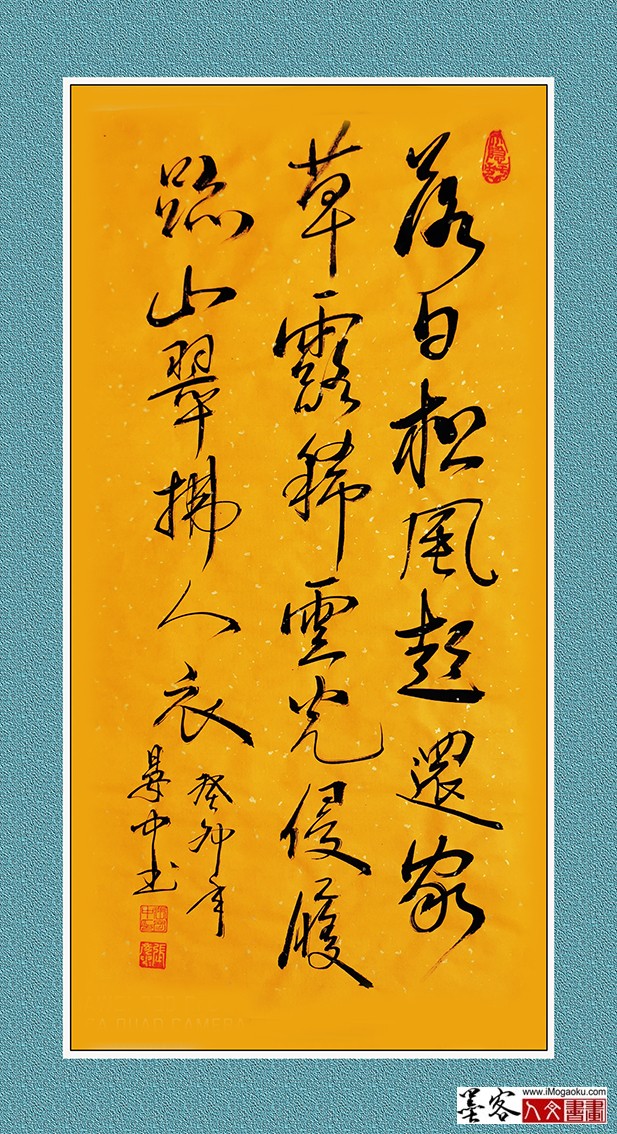 落日松風起還家
草露稀雲光侵履
跡山翠拂人衣
癸卯年
中书
墨客
www.iMogaoku.com
人文書畫